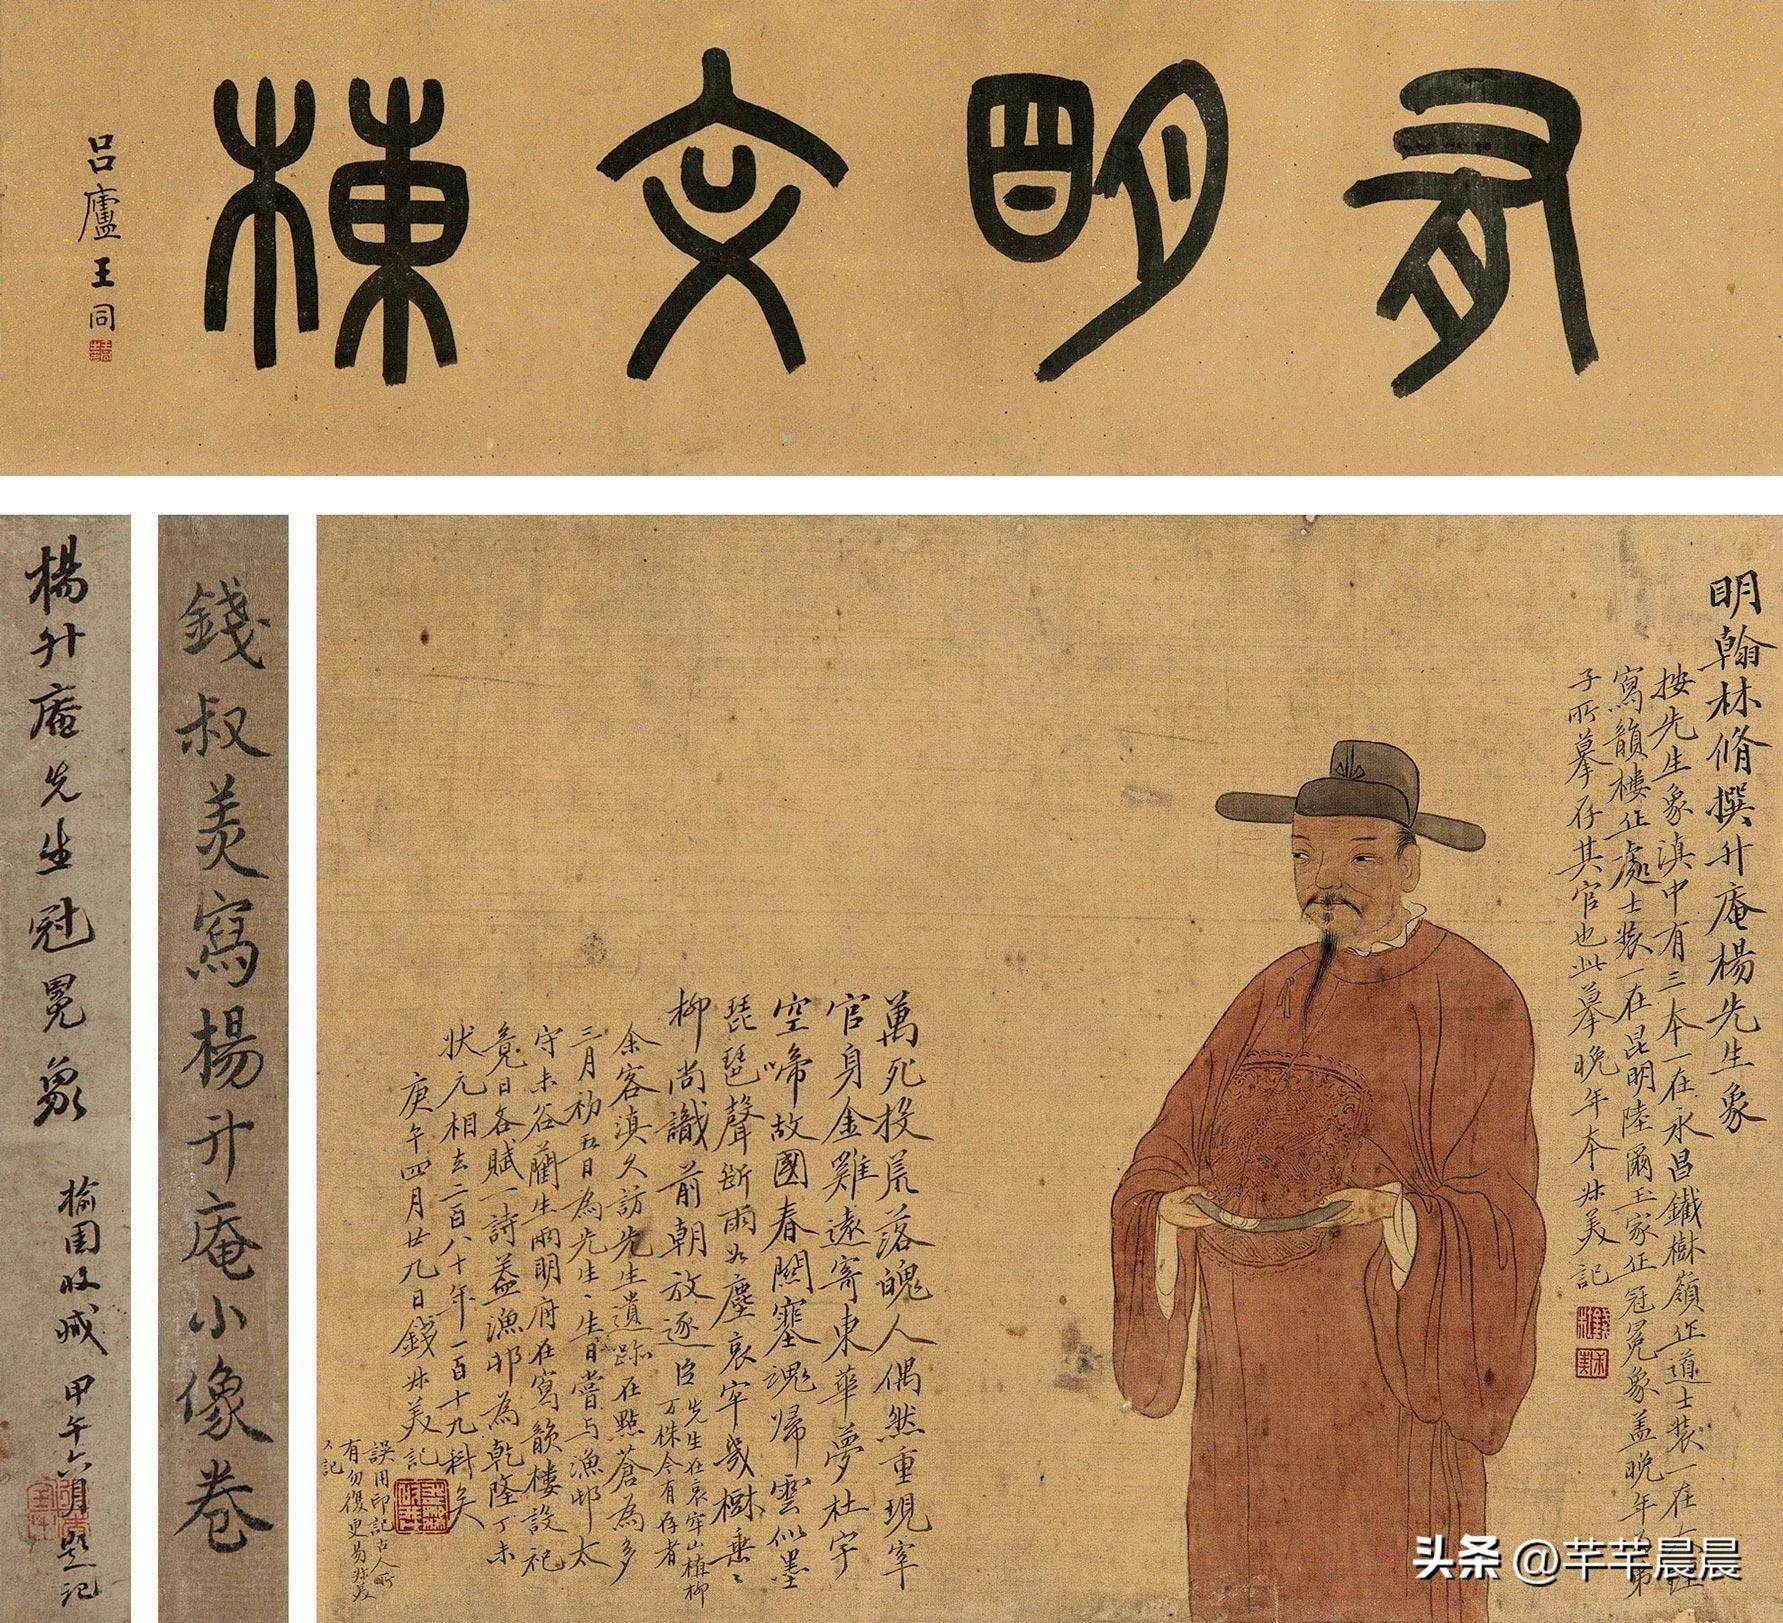 有明文棟
吕廬王同
楊升庵先生冠冕象
榆園收藏 甲午六月題記
錢叔美寫楊升庵小像卷
明翰林脩撰升庵楊先生象
按先生象滇中有三本一在永昌鐵樹嶺作道士裝一在
寫韻樓作處士裝一在昆明陸爾玉家作冠冕象蓋晚年
子所摹存其官也此摹晚年本叔美記
萬死投荒落魄人偶然重現宰
官身金雞遠寄東華夢杜宇
空啼故國春關塞魂歸雲似墨
琵琶聲斷雨如塵哀牢幾樹垂垂
柳尚識前朝放逐臣
先生在哀牢山植柳
万株今有存者
余客滇久訪先生遺跡在點蒼為多
三月初五日為先生生日嘗与漁邨太
守未谷蘭生兩明府在寫韻樓設祀
竟日各賦一詩蓋漁邨為乾隆丁未
狀元相去二百八十年一百十九科矣
庚午四月廿九日錢叔美記
誤用印記古人所
有勿復更易叔美
又記
头条 @芊芊晨晨